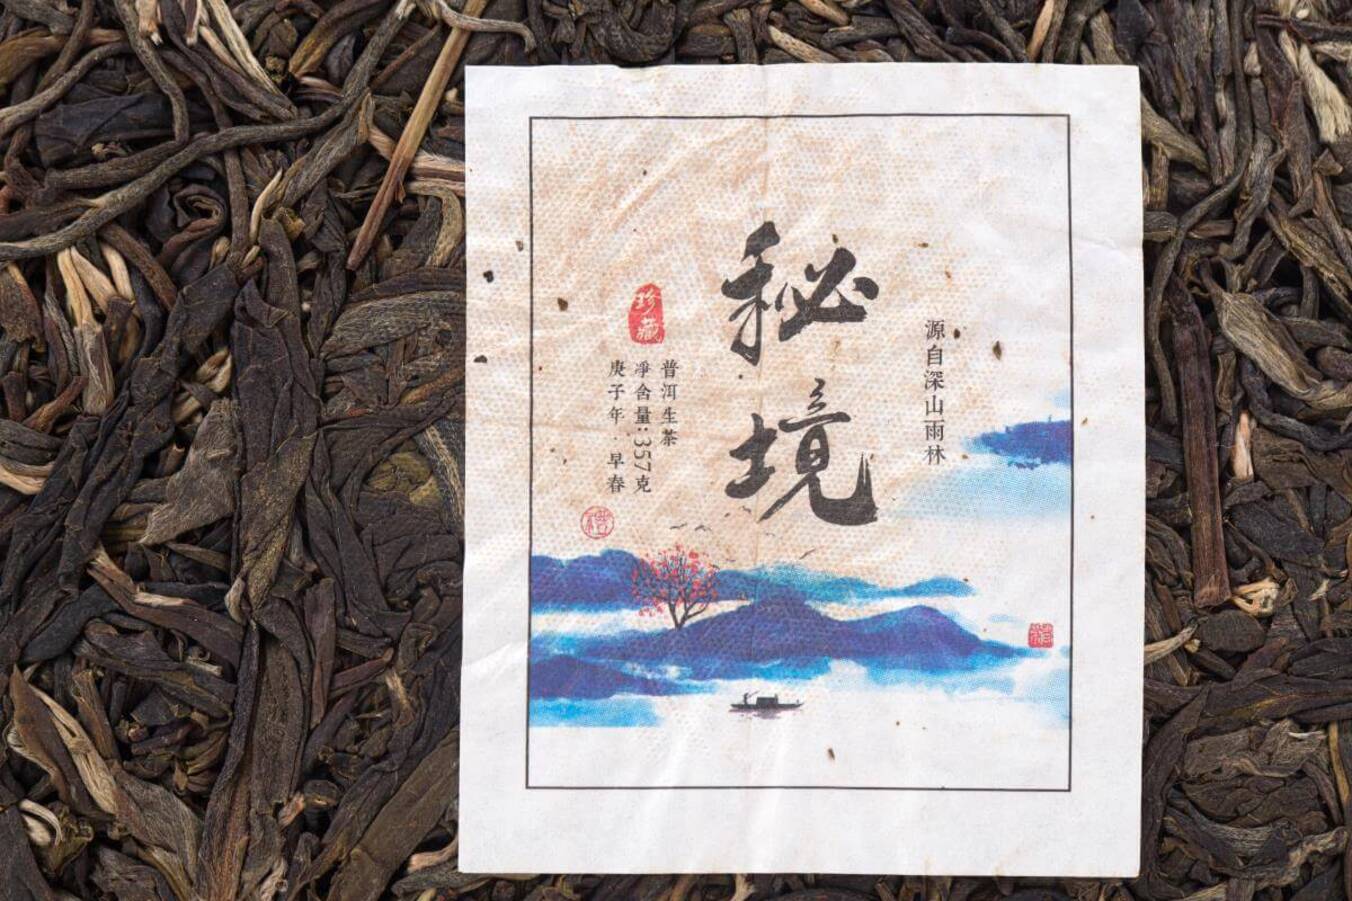 源自深山雨林
秘境
珍藏
普洱生茶
净含量:357克
庚子年·早春